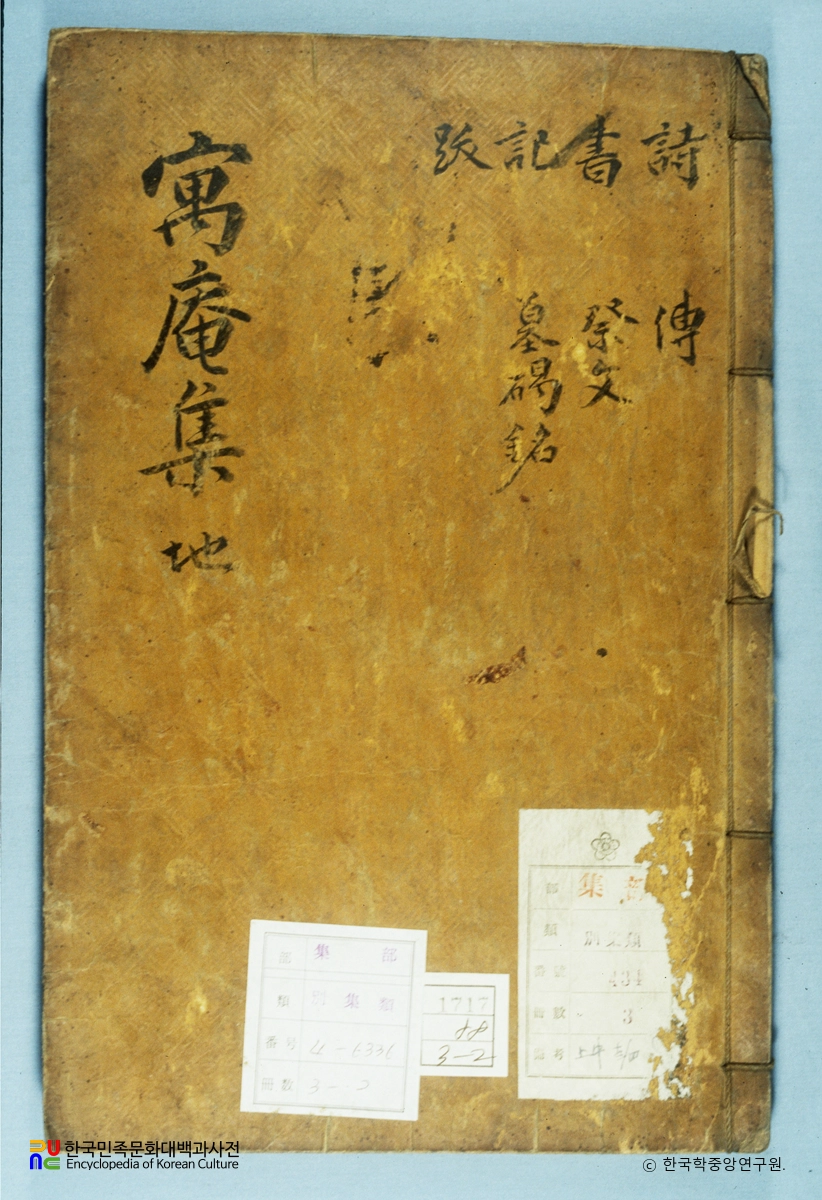 寓庵集 地
詩 書 記 跋
傳 祭文 墓碣銘
部 集 部
類 別集類
番号 4-6331
冊數 3-2
1717
3-2
部 集
類 別 類
番號
冊數 3
한국민족문화대백과사전
Encyclopedia of Korean Culture
© 한국학중앙연구원.